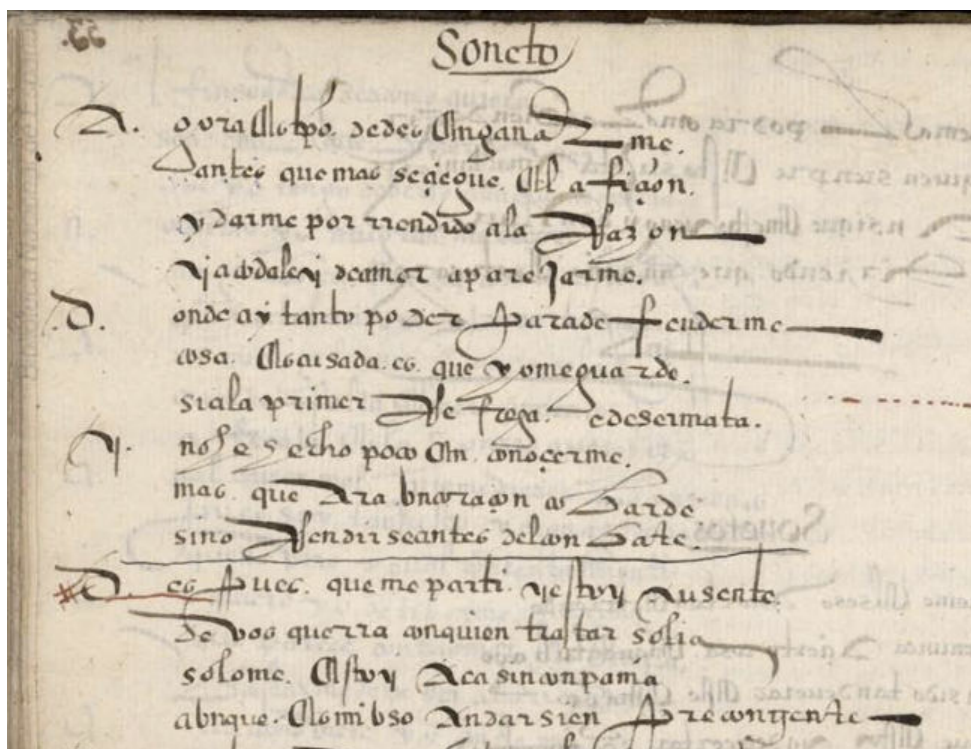 53.
Soneto
A. ora es tpo. de des enganarme.
Dantes que mas seçiegue. El afiçion.
y darme por rrendido ala Razon
yia coda lei de amor aparejarme.
D. onde ay tanto poder Para defenderme
cosa. escusada. es. que yo me guarde.
si ala primer Refrega. Sede ser mata.
Y. no he hecho poco En. conoçerme.
mas. que Ara bn coraçon cobarde
sino Rendirse antes del conbate.
D es Pues. que me parti. y estoy Ausente.
De vos guerra con quien tratar solia
solo me. Estoy Aca sin conpania
abnque. Es mi bso Andar sien Pre con gente